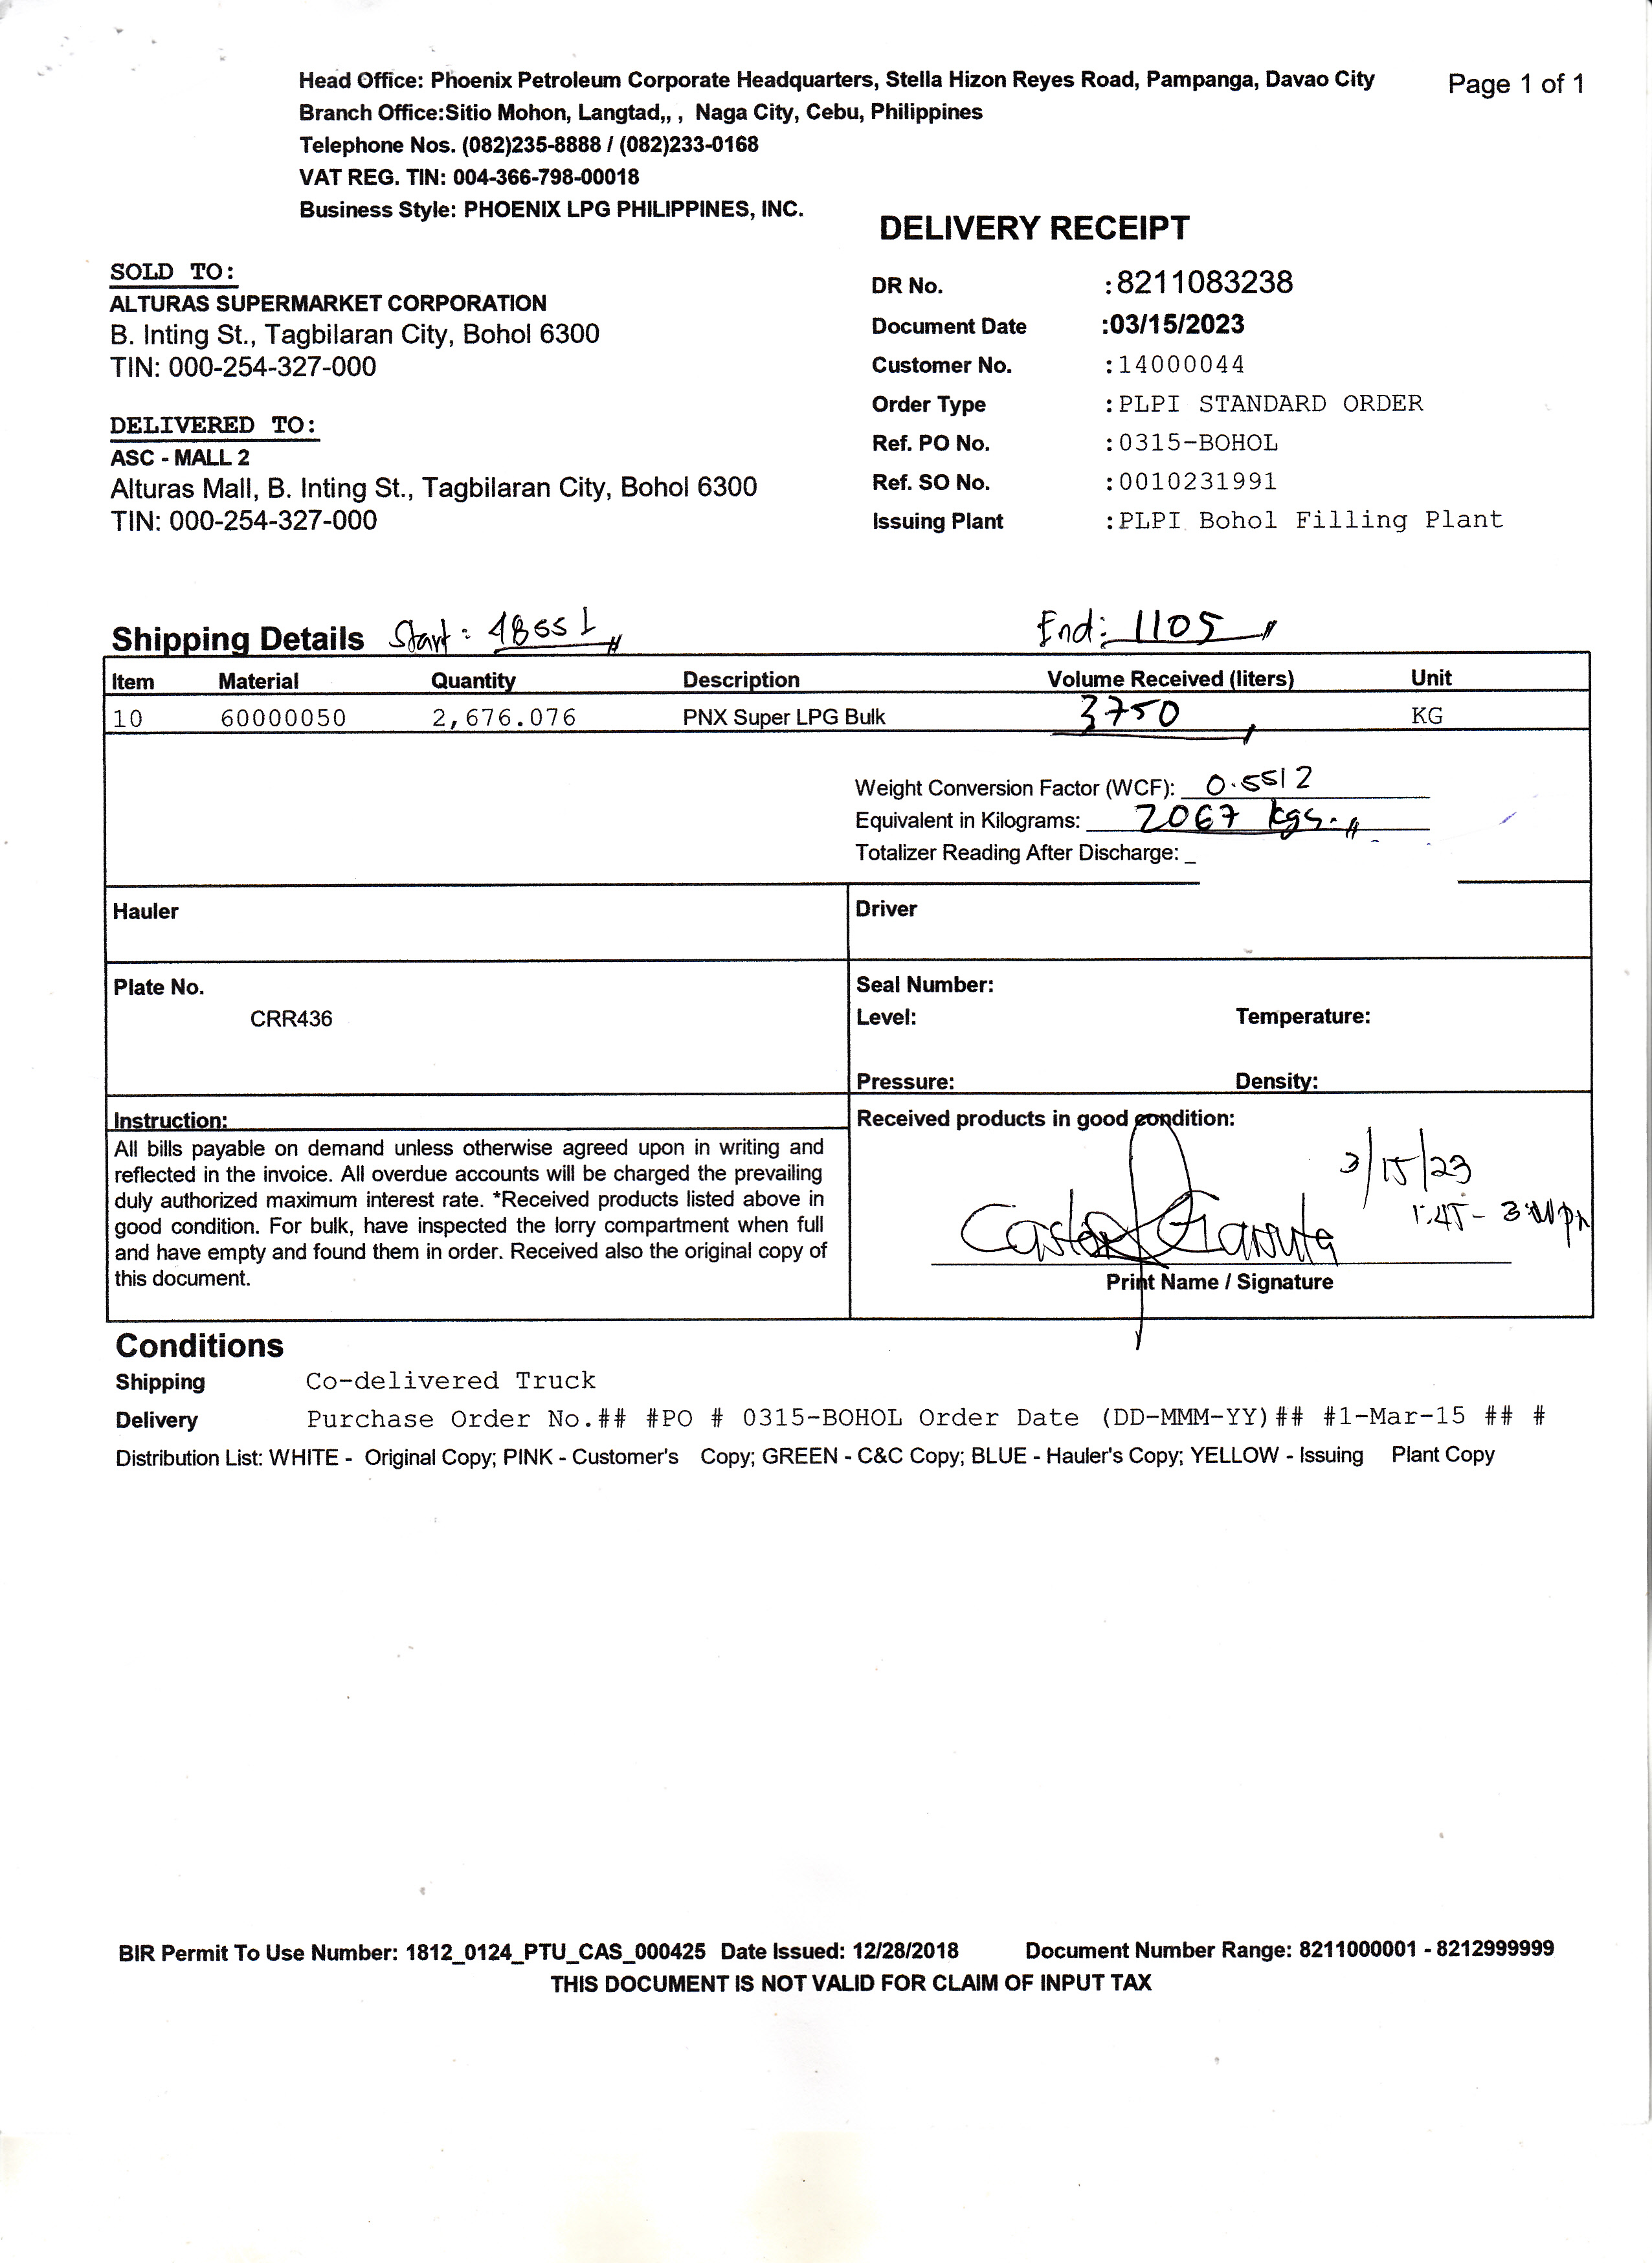 Head Office: Phoenix Petroleum Corporate Headquarters, Stella Hizon Reyes Road, Pampanga, Davao City
Page 1 of 1
Branch Office:Sitio Mohon, Langtad,, , Naga City, Cebu, Philippines
Telephone Nos. (082)235-8888 / (082)233-0168
VAT REG. TIN: 004-366-798-00018
Business Style: PHOENIX LPG PHILIPPINES, INC.
DELIVERY RECEIPT
SOLD TO:
ALTURAS SUPERMARKET CORPORATION
B. Inting St., Tagbilaran City, Bohol 6300
TIN: 000-254-327-000
DELIVERED TO:
ASC - MALL 2
Alturas Mall, B. Inting St., Tagbilaran City, Bohol 6300
TIN: 000-254-327-000
DR No. :8211083238
Document Date :03/15/2023
Customer No. :14000044
Order Type :PLPI STANDARD ORDER
Ref. PO No. :0315-BOHOL
Ref. SO No. :0010231991
Issuing Plant :PLPI Bohol Filling Plant
Shipping Details Start: End: 1105
Item Material Quantity Description Volume Received (liters) Unit
10 60000050 2,676.076 PNX Super LPG Bulk 3750 KG
Weight Conversion Factor (WCF): 0.5512
Equivalent in Kilograms: 2067 kgs.
Totalizer Reading After Discharge: _
Hauler
Driver
Plate No.
CRR436
Seal Number:
Level: Temperature:
Pressure: Density:
Instruction:
All bills payable on demand unless otherwise agreed upon in writing and
reflected in the invoice. All overdue accounts will be charged the prevailing
duly authorized maximum interest rate. *Received products listed above in
good condition. For bulk, have inspected the lorry compartment when full
and have empty and found them in order. Received also the original copy of
this document.
Received products in good condition:
3/15/23
1:45 - 3:00 pm
Print Name / Signature
Conditions
Shipping Co-delivered Truck
Delivery Purchase Order No.## #PO # 0315-BOHOL Order Date (DD-MMM-YY)## #1-Mar-15 ## #
Distribution List: WHITE - Original Copy; PINK - Customer's Copy; GREEN - C&C Copy; BLUE - Hauler's Copy; YELLOW - Issuing Plant Copy
BIR Permit To Use Number: 1812_0124_PTU_CAS_000425 Date Issued: 12/28/2018 Document Number Range: 8211000001 - 8212999999
THIS DOCUMENT IS NOT VALID FOR CLAIM OF INPUT TAX